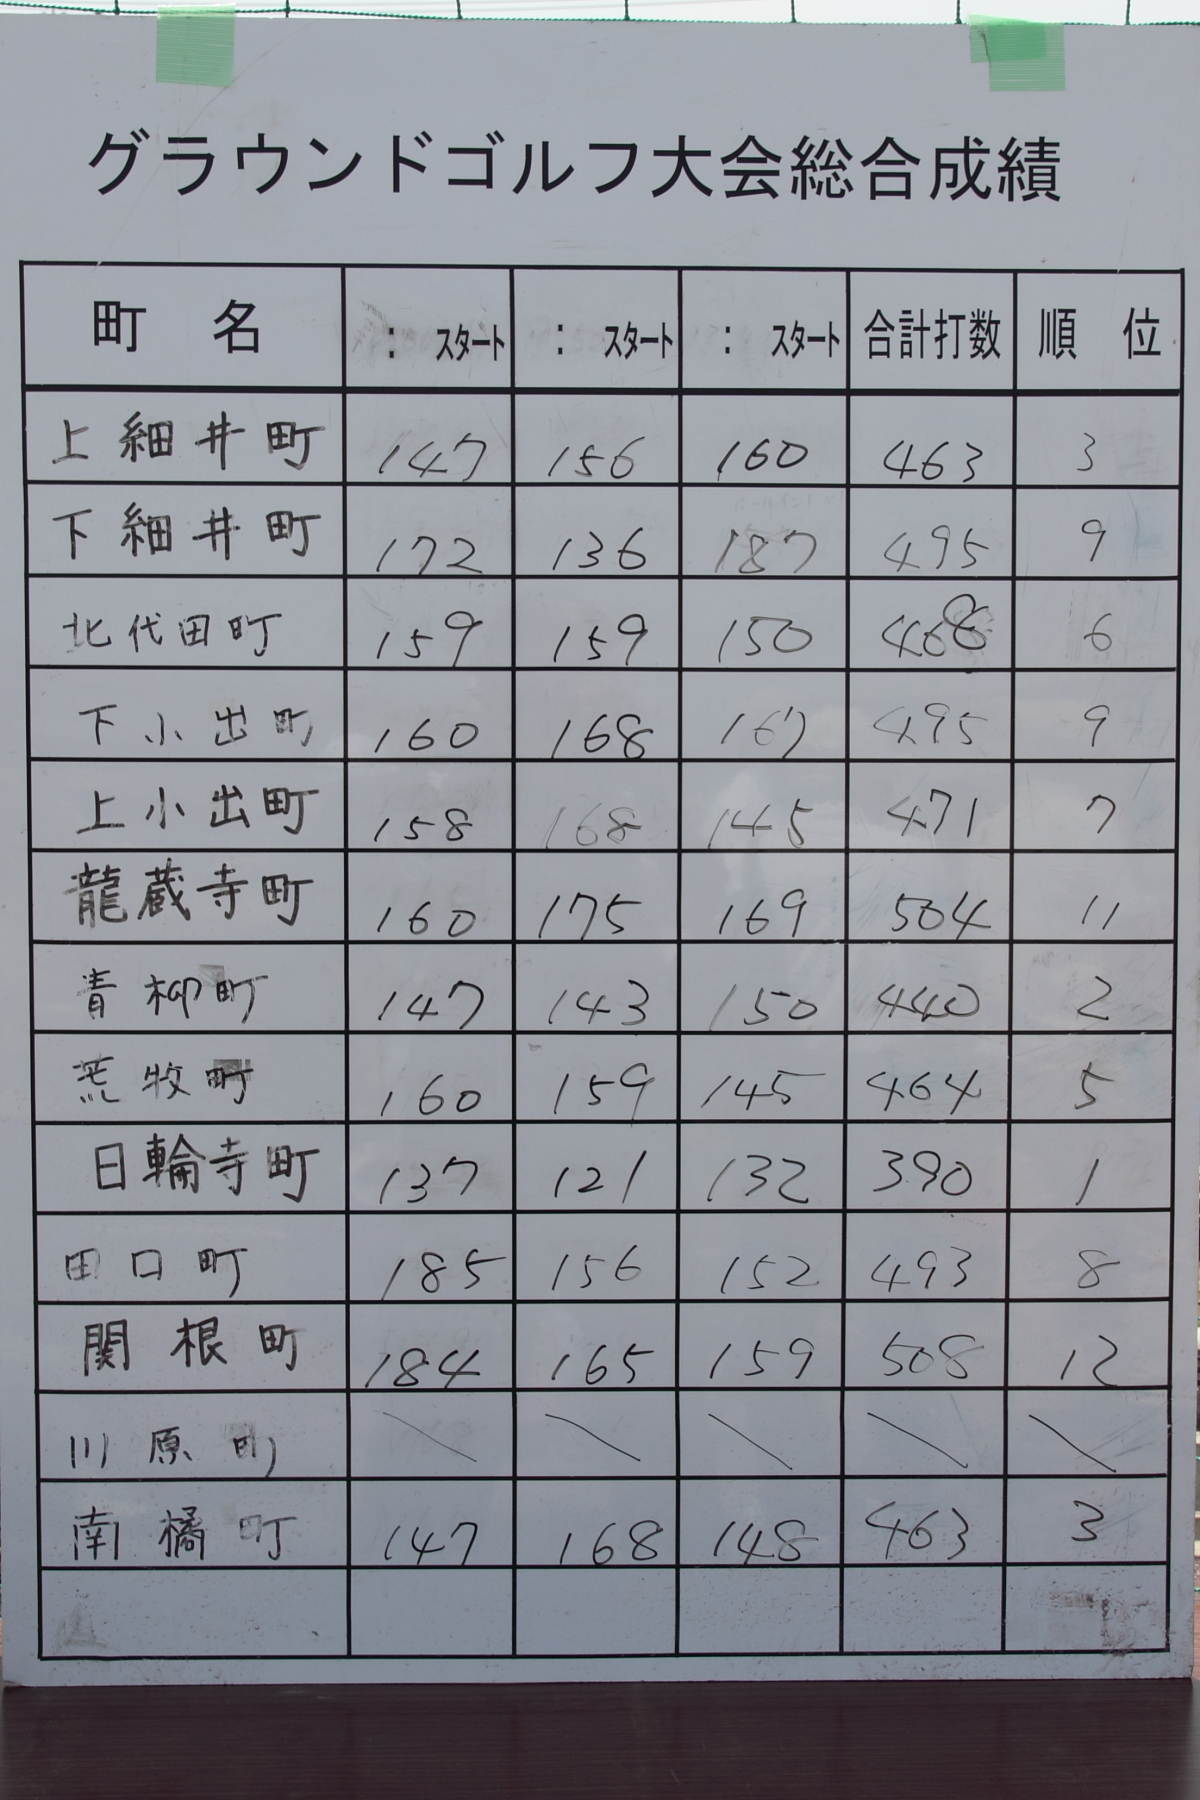 グラウンドゴルフ大会総合成績
町 名 : スタート : スタート : スタート 合計打数 順 位
上細井町 147 156 160 463 3
下細井町 172 136 187 495 9
北代田町 159 159 150 468 6
下小出町 160 168 167 495 9
上小出町 158 168 145 471 7
龍蔵寺町 160 175 169 504 11
青柳町 147 143 150 440 2
荒牧町 160 159 145 464 5
日輪寺町 137 121 132 390 1
田口町 185 156 152 493 8
関根町 184 165 159 508 12
川原町 \ \ \ \ \
南橘町 147 168 148 463 3